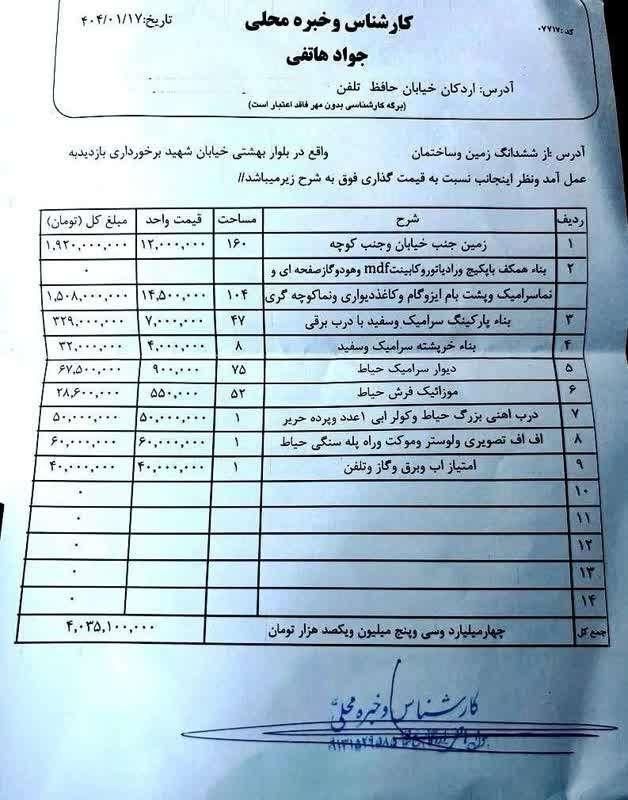 کارشناس وخبره محلی
تاریخ: ۴۰۴/۰۱/۱۷
کد: ۰۷۷۱۷
جواد هاتفی
آدرس: اردکان خیابان حافظ تلفن
(برگه کارشناسی بدون مهر فاقد اعتبار است)
آدرس: از ششدانگ زمین وساختمان واقع در بلوار بهشتی خیابان شهید برخورداری بازدیدبه
عمل آمد ونظر اینجانب نسبت به قیمت گذاری فوق به شرح زیرمیباشد//
ردیف شرح مساحت قیمت واحد مبلغ کل (تومان)
۱ زمین جنب خیابان وجنب کوچه ۱۶۰ ۱۲,۰۰۰,۰۰۰ ۱,۹۲۰,۰۰۰,۰۰۰
۲ بناء همکف باپکیج ورادیاتوروکابینتmdf وهودوگازصفحه ای و ۰
نماسرامیک وپشت بام ایزوگام وکاغذدیواری ونماکوچه گری ۱۰۴ ۱۴,۵۰۰,۰۰۰ ۱,۵۰۸,۰۰۰,۰۰۰
۳ بناء پارکینگ سرامیک وسفید با درب برقی ۴۷ ۷,۰۰۰,۰۰۰ ۳۲۹,۰۰۰,۰۰۰
۴ بناء خرپشته سرامیک وسفید ۸ ۴,۰۰۰,۰۰۰ ۳۲,۰۰۰,۰۰۰
۵ دیوار سرامیک حیاط ۷۵ ۹۰۰,۰۰۰ ۶۷,۵۰۰,۰۰۰
۶ موزائیک فرش حیاط ۵۲ ۵۵۰,۰۰۰ ۲۸,۶۰۰,۰۰۰
۷ درب اهنی بزرگ حیاط وکولر ابی ۱عدد وپرده حریر ۱ ۵۰,۰۰۰,۰۰۰ ۵۰,۰۰۰,۰۰۰
۸ اف اف تصویری ولوستر وموکت وراه پله سنگی حیاط ۱ ۶۰,۰۰۰,۰۰۰ ۶۰,۰۰۰,۰۰۰
۹ امتیاز اب وبرق وگاز وتلفن ۱ ۴۰,۰۰۰,۰۰۰ ۴۰,۰۰۰,۰۰۰
۱۰ ۰
۱۱ ۰
۱۲ ۰
۱۳ ۰
۱۴ ۰
جمع کل چهارمیلیارد وسی وپنج میلیون ویکصد هزار تومان ۴,۰۳۵,۱۰۰,۰۰۰
کارشناس وخبره محلی